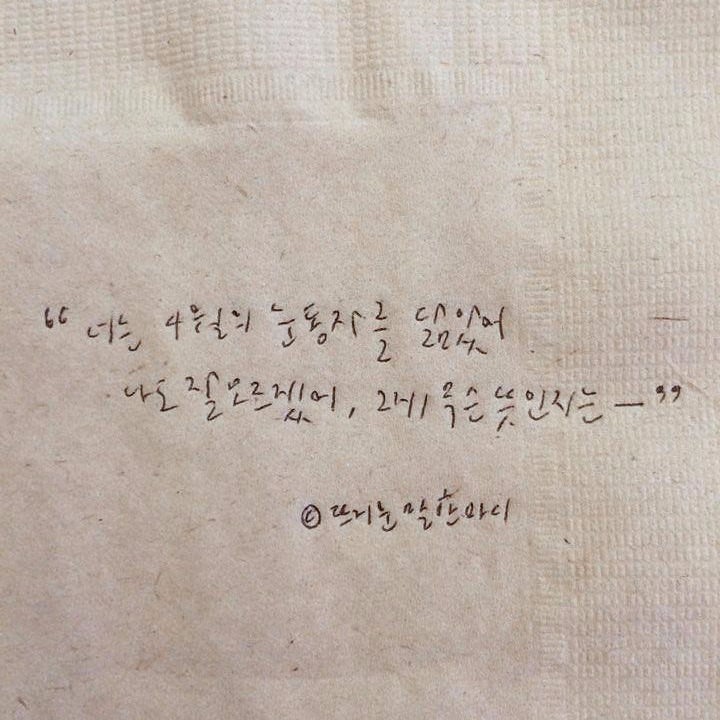 “ 너는 4월의 눈동자를 닮았어 —
나도 잘 모르겠어, 그게 무슨 뜻인지는 — ”
© 뜨거운 말 한마디